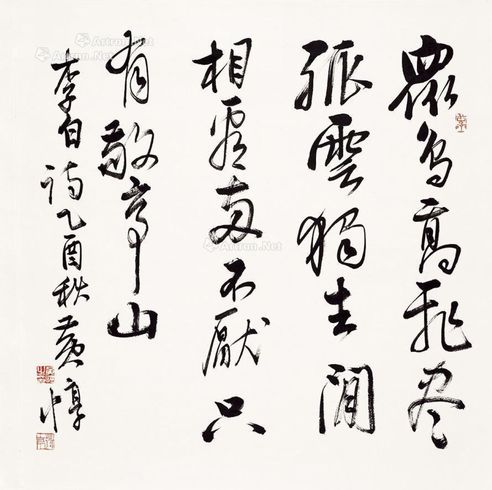 眾鳥高飛盡
孤雲獨去閒
相看兩不厭只
有敬亭山
李白詩乙酉秋黃惇
Artron.Net